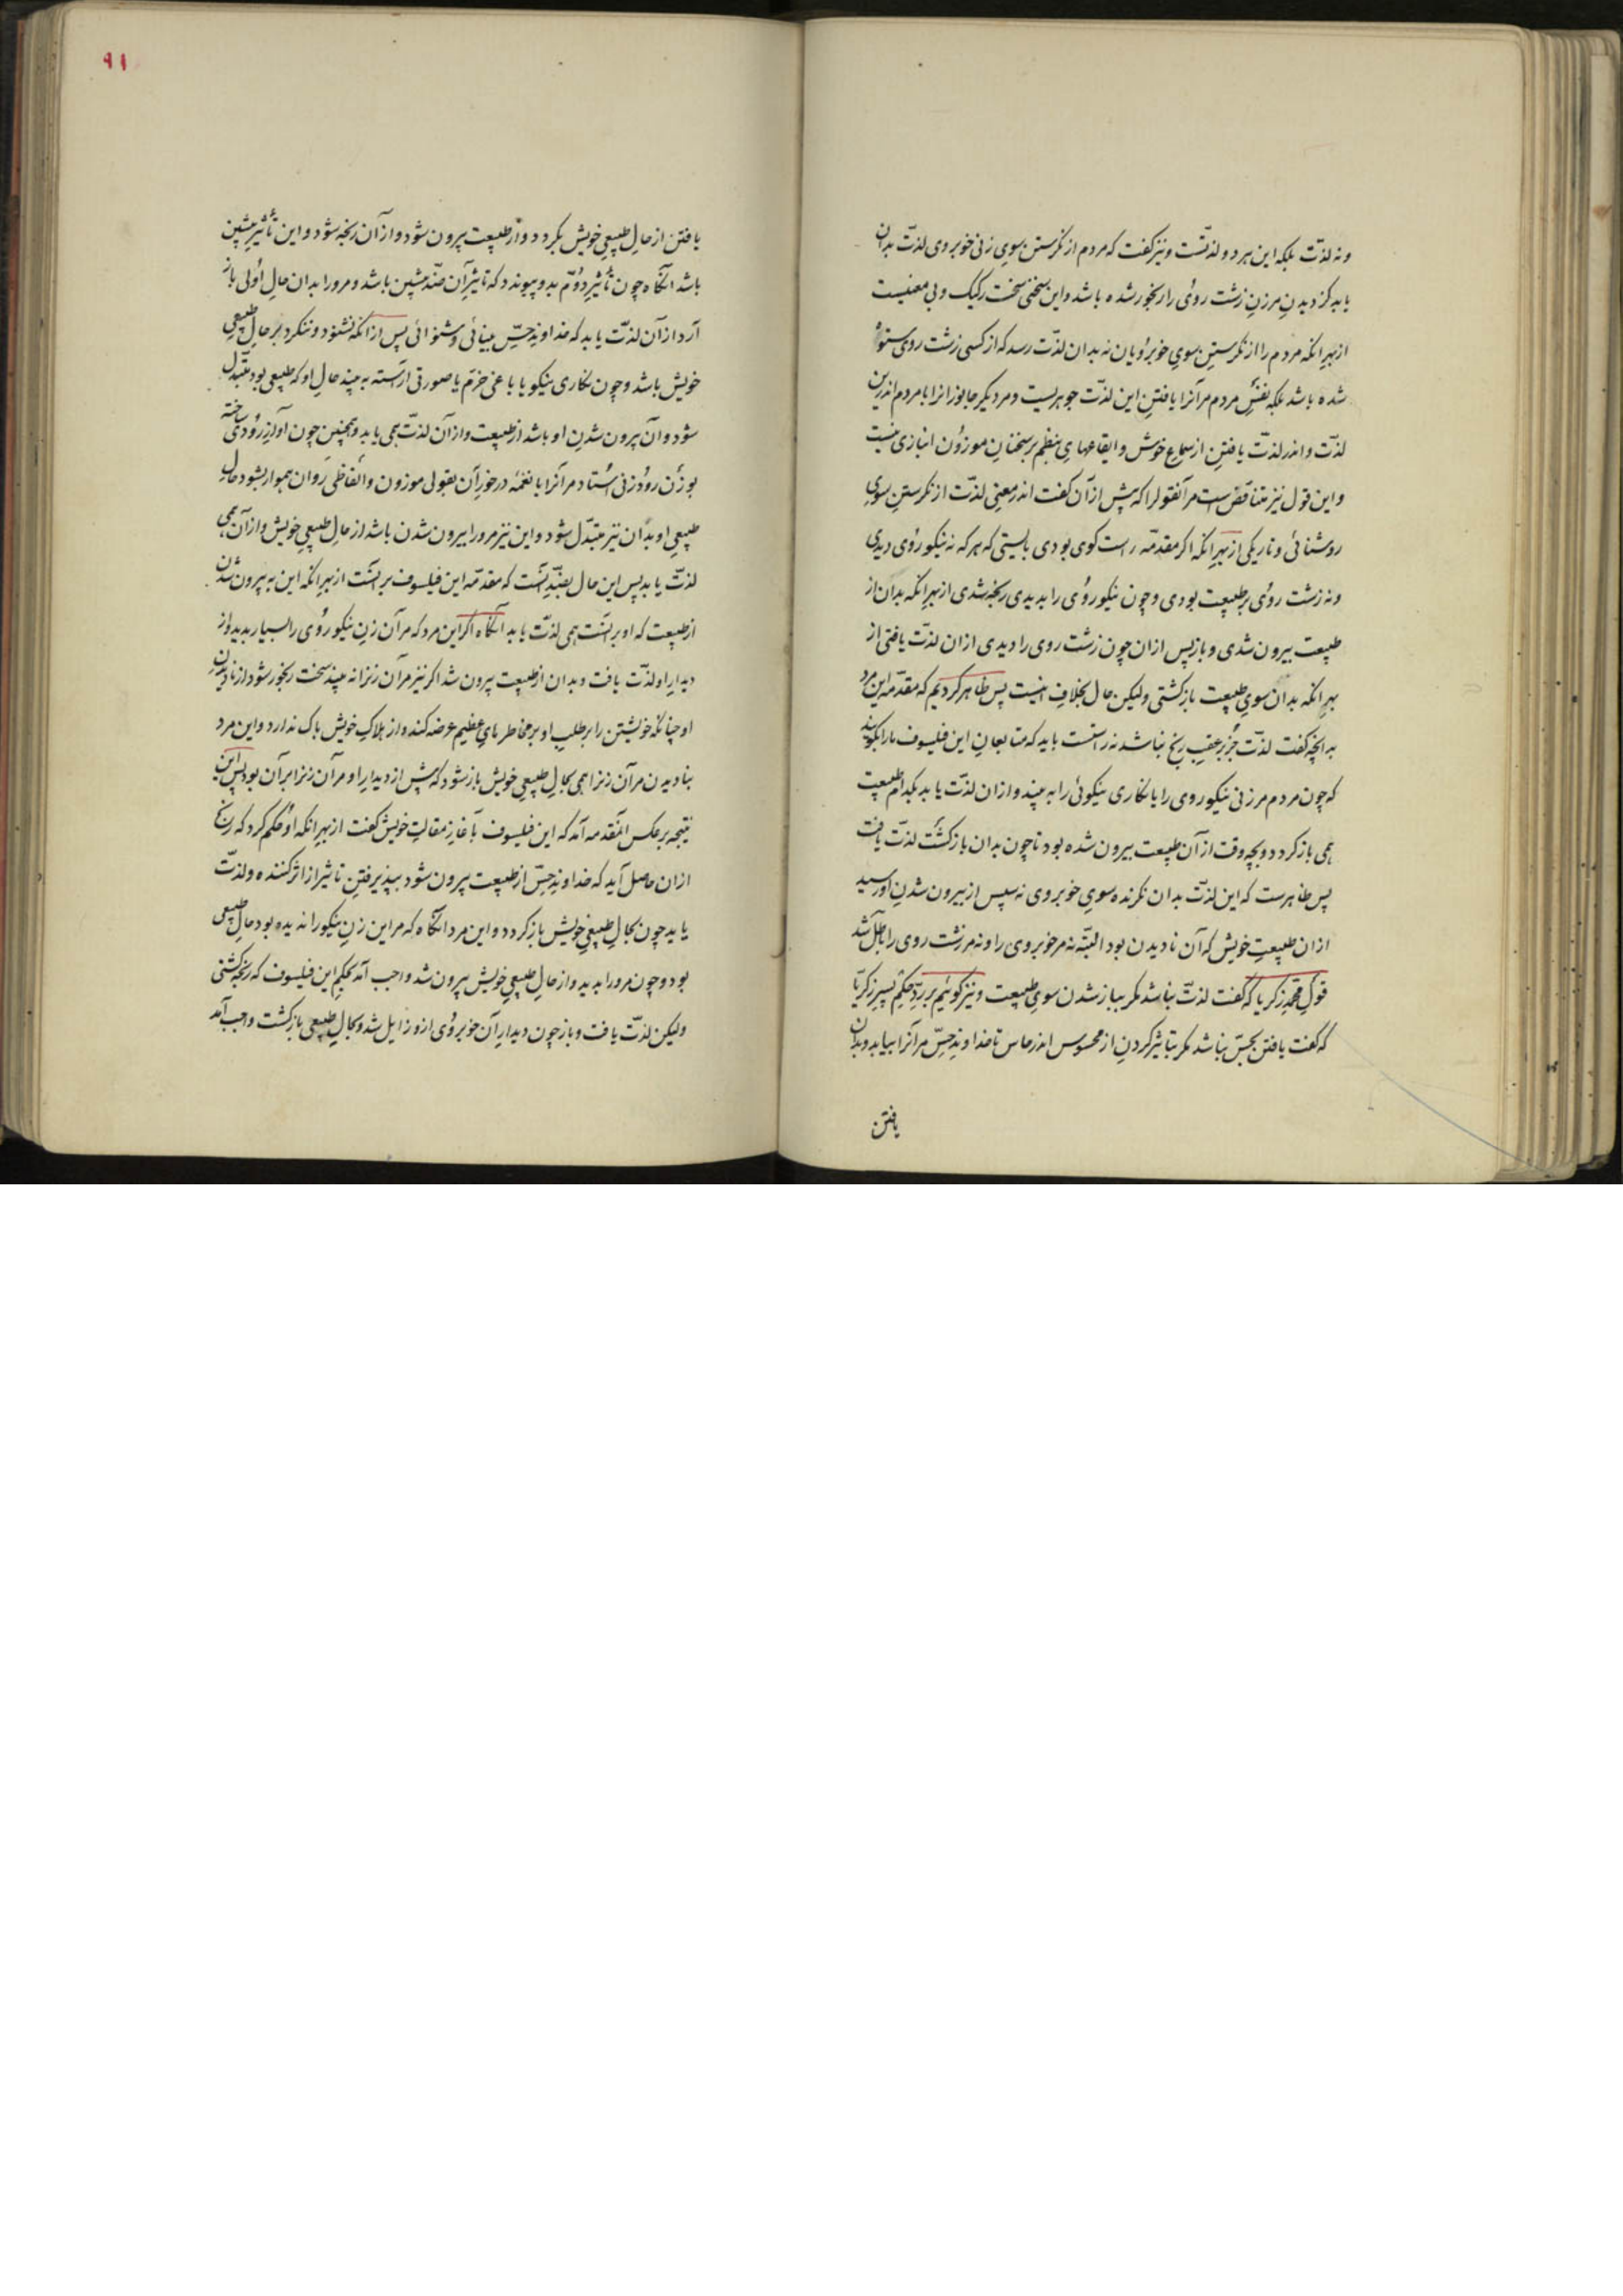 ونه لذّت بلکه این هر دو لذّتست ونیز کفت که مردم از نکرستن سوی زنی خوبروی لذّت بدان
یابد کز دیدن مر زن زشت روی را رنجور شده باشد واین سخنی سخت رکیک وبی معنیست
از بهر انکه مردم را از نکرستن سوی خوبرویان نه بدان لذّت رسد که از کسی زشت روی ستوه
شده باشد بلکه نفس مردم مر آنرا یافتن این لذّت جوهریست ومر دیکر جانورانرا با مردم اندرین
لذّت واندر لذّت یافتن از سماع خوش وایقاعهای بنظم بر سخنان موزون انبازی نیست
واین قول نیز متناقض است مر آنقول را که پیش از آن کفت اندر معنی لذّت از نکرستن سوی
روشنائی وتاریکی از بهر انکه اکر مقدمّه راست کوی بودی بایستی که هر که نه نیکو روی دیدی
ونه زشت روی بر طبیعت بودی وچون نیکو روی را بدیدی رنجه شدی از بهر انکه بدان از
طبیعت بیرون شدی وباز پس ازان چون زشت روی را دیدی ازان لذّت یافتی از
بهر انکه بدان سوی طبیعت بازکشتی ولیکن حال بخلاف اینست پس ظاهر کردیم که مقدّمه این مرد
به انچه کفت لذّت جز بر عقب رنج نباشد نه راست است باید که متابعان این فیلسوف مارا بکویند
که چون مردم مر زنی نیکو روی را یا نکاری نیکوئی را به بیند وازان لذّت یابد بکدام طبیعت
همی باز کردد وبچه وقت از آن طبیعت بیرون شده بود تا چون بدان بازکشت لذّت یافت
پس ظاهرست که این لذّت بدان نکرنده سوی خوبروی نه سپس از بیرون شدن او رسید
ازان طبیعت خویش که آن نادیدن بود البتّه نه مر خوبروی را ونه مر زشت روی را باطل شد
قول محمّد زکریا که کفت لذّت نباشد مکر بباز شدن سوی طبیعت ونیز کوئیم بر ردّ حکیم پسر زکریّا
که کفت یافتن بحسّ نباشد مکر بتاثیر کردن از محسوس اندر حاس تا خداوند حسّ مر آنرا بیابد وبدان
یافتن
۹۱
یافتن از حال طبیعی خویش بکردد واز طبیعت بیرون شود واز آن رنجه شود واین تأثیر پیشین
باشد انکاه چون تأثیر دوّم بدو پیوندد که تاثیر آن ضدّ پیشین باشد ومرورا بدان حال اولی باز
آرد از آن لذّت یابد که خداوند حسّ بینائی وشنوائی پس از انکه نشنود وننکرد بر حال طبیعی
خویش باشد وچون نکاری نیکو یا باغی خرّم یا صورتی آراسته به بیند حال او که طبیعی بود متبدّل
شود وآن بیرون شدن او باشد از طبیعت واز آن لذّت همی یابد وهمچنین چون آواز رودی ساخته
بوزن رود زنی استاد مر آنرا با نغمه درخور آن بقولی موزون والفاظی روان هموار بشنود حال
طبیعی او بدان نیز متبدّل شود واین نیز مرورا بیرون شدن باشد از حال طبیعی خویش واز آن همی
لذّت یابد پس این حال بضدّ آنست که مقدمّه این فیلسوف بر انست از بهر انکه این به بیرون شدن
از طبیعت که او بر انست همی لذّت یابد آنکاه اکر این مرد که مر آن زن نیکو روی را بسیار بدید واز
دیدار او لذّت یافت وبدان از طبیعت بیرون شد اکر نیز مر آن زنرا نه بیند سخت رنجور شود از نادیدن
او چنانکه خویشتن را بر طلب او بر مخاطر های عظیم عرضه کند واز هلاک خویش باک ندارد واین مرد
بنادیدن مر آن زنرا همی بحال طبیعی خویش باز شود که پیش از دیدار او مر آن زنرا بر آن بود پس این
نتیجه بر عکس آنمقدمه آمد که این فیلسوف بآغاز مقالت خویش کفت از بهر انکه او حکم کرد که رنج
ازان حاصل آید که خداوند حسّ از طبیعت بیرون شود بپذیرفتن تاثیر از اثر کننده ولذّت
یابد چون بحال طبیعی خویش باز کردد واین مرد انکاه که مر این زن نیکو را ندیده بود حال طبیعی
بود وچون مرورا بدید واز حال طبیعی خویش بیرون شد واجب آمد بحکم این فیلسوف که رنجه کشتی
ولیکن لذّت یافت وباز چون دیدار آن خوبروی ازو زایل شد وبحال طبیعی بازکشت واجب آمد